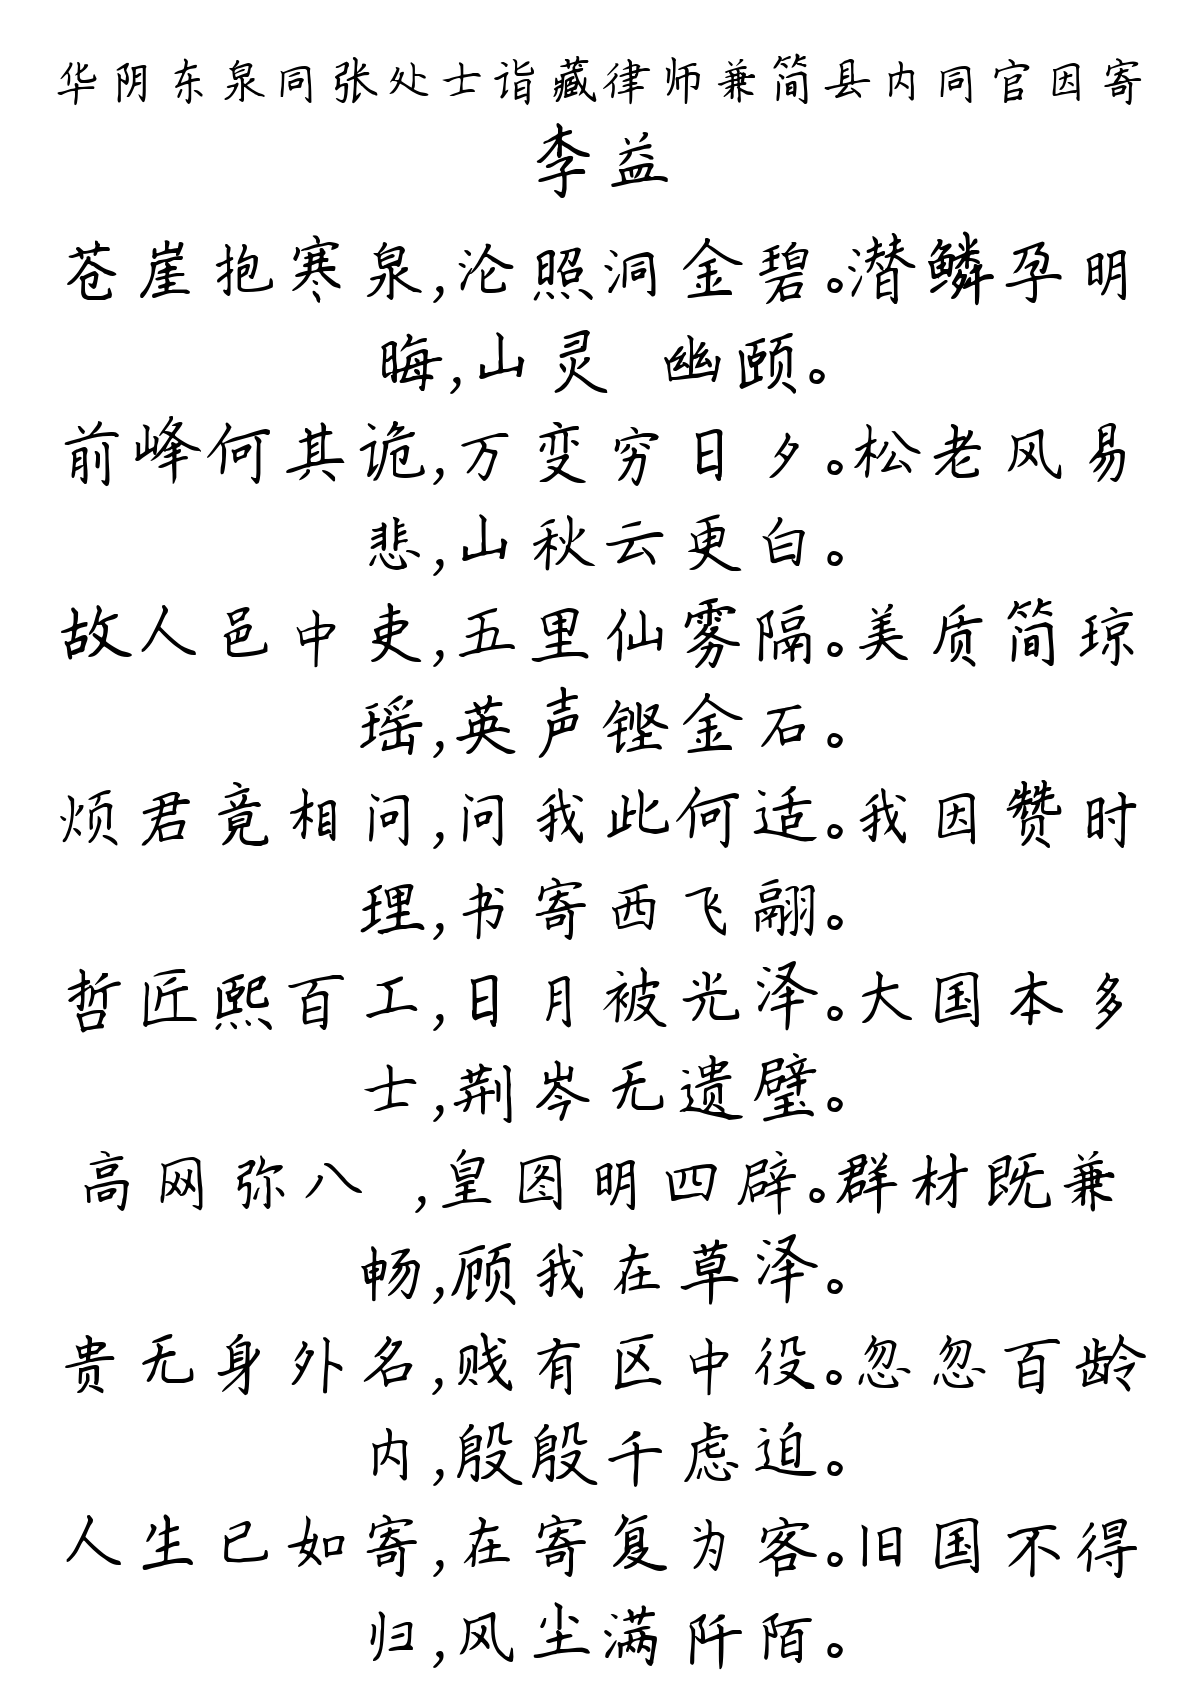 华阴东泉同张处士诣藏律师兼简县内同官因寄
李益
苍崖抱寒泉,沦照洞金碧。潜鳞孕明
晦,山灵 幽颐。
前峰何其诡,万变穷日夕。松老风易
悲,山秋云更白。
故人邑中吏,五里仙雾隔。美质简琼
瑶,英声铿金石。
烦君竟相问,问我此何适。我因赞时
理,书寄西飞翮。
哲匠熙百工,日月被光泽。大国本多
士,荆岑无遗璧。
高网弥八 ,皇图明四辟。群材既兼
畅,顾我在草泽。
贵无身外名,贱有区中役。忽忽百龄
内,殷殷千虑迫。
人生已如寄,在寄复为客。旧国不得
归,风尘满阡陌。